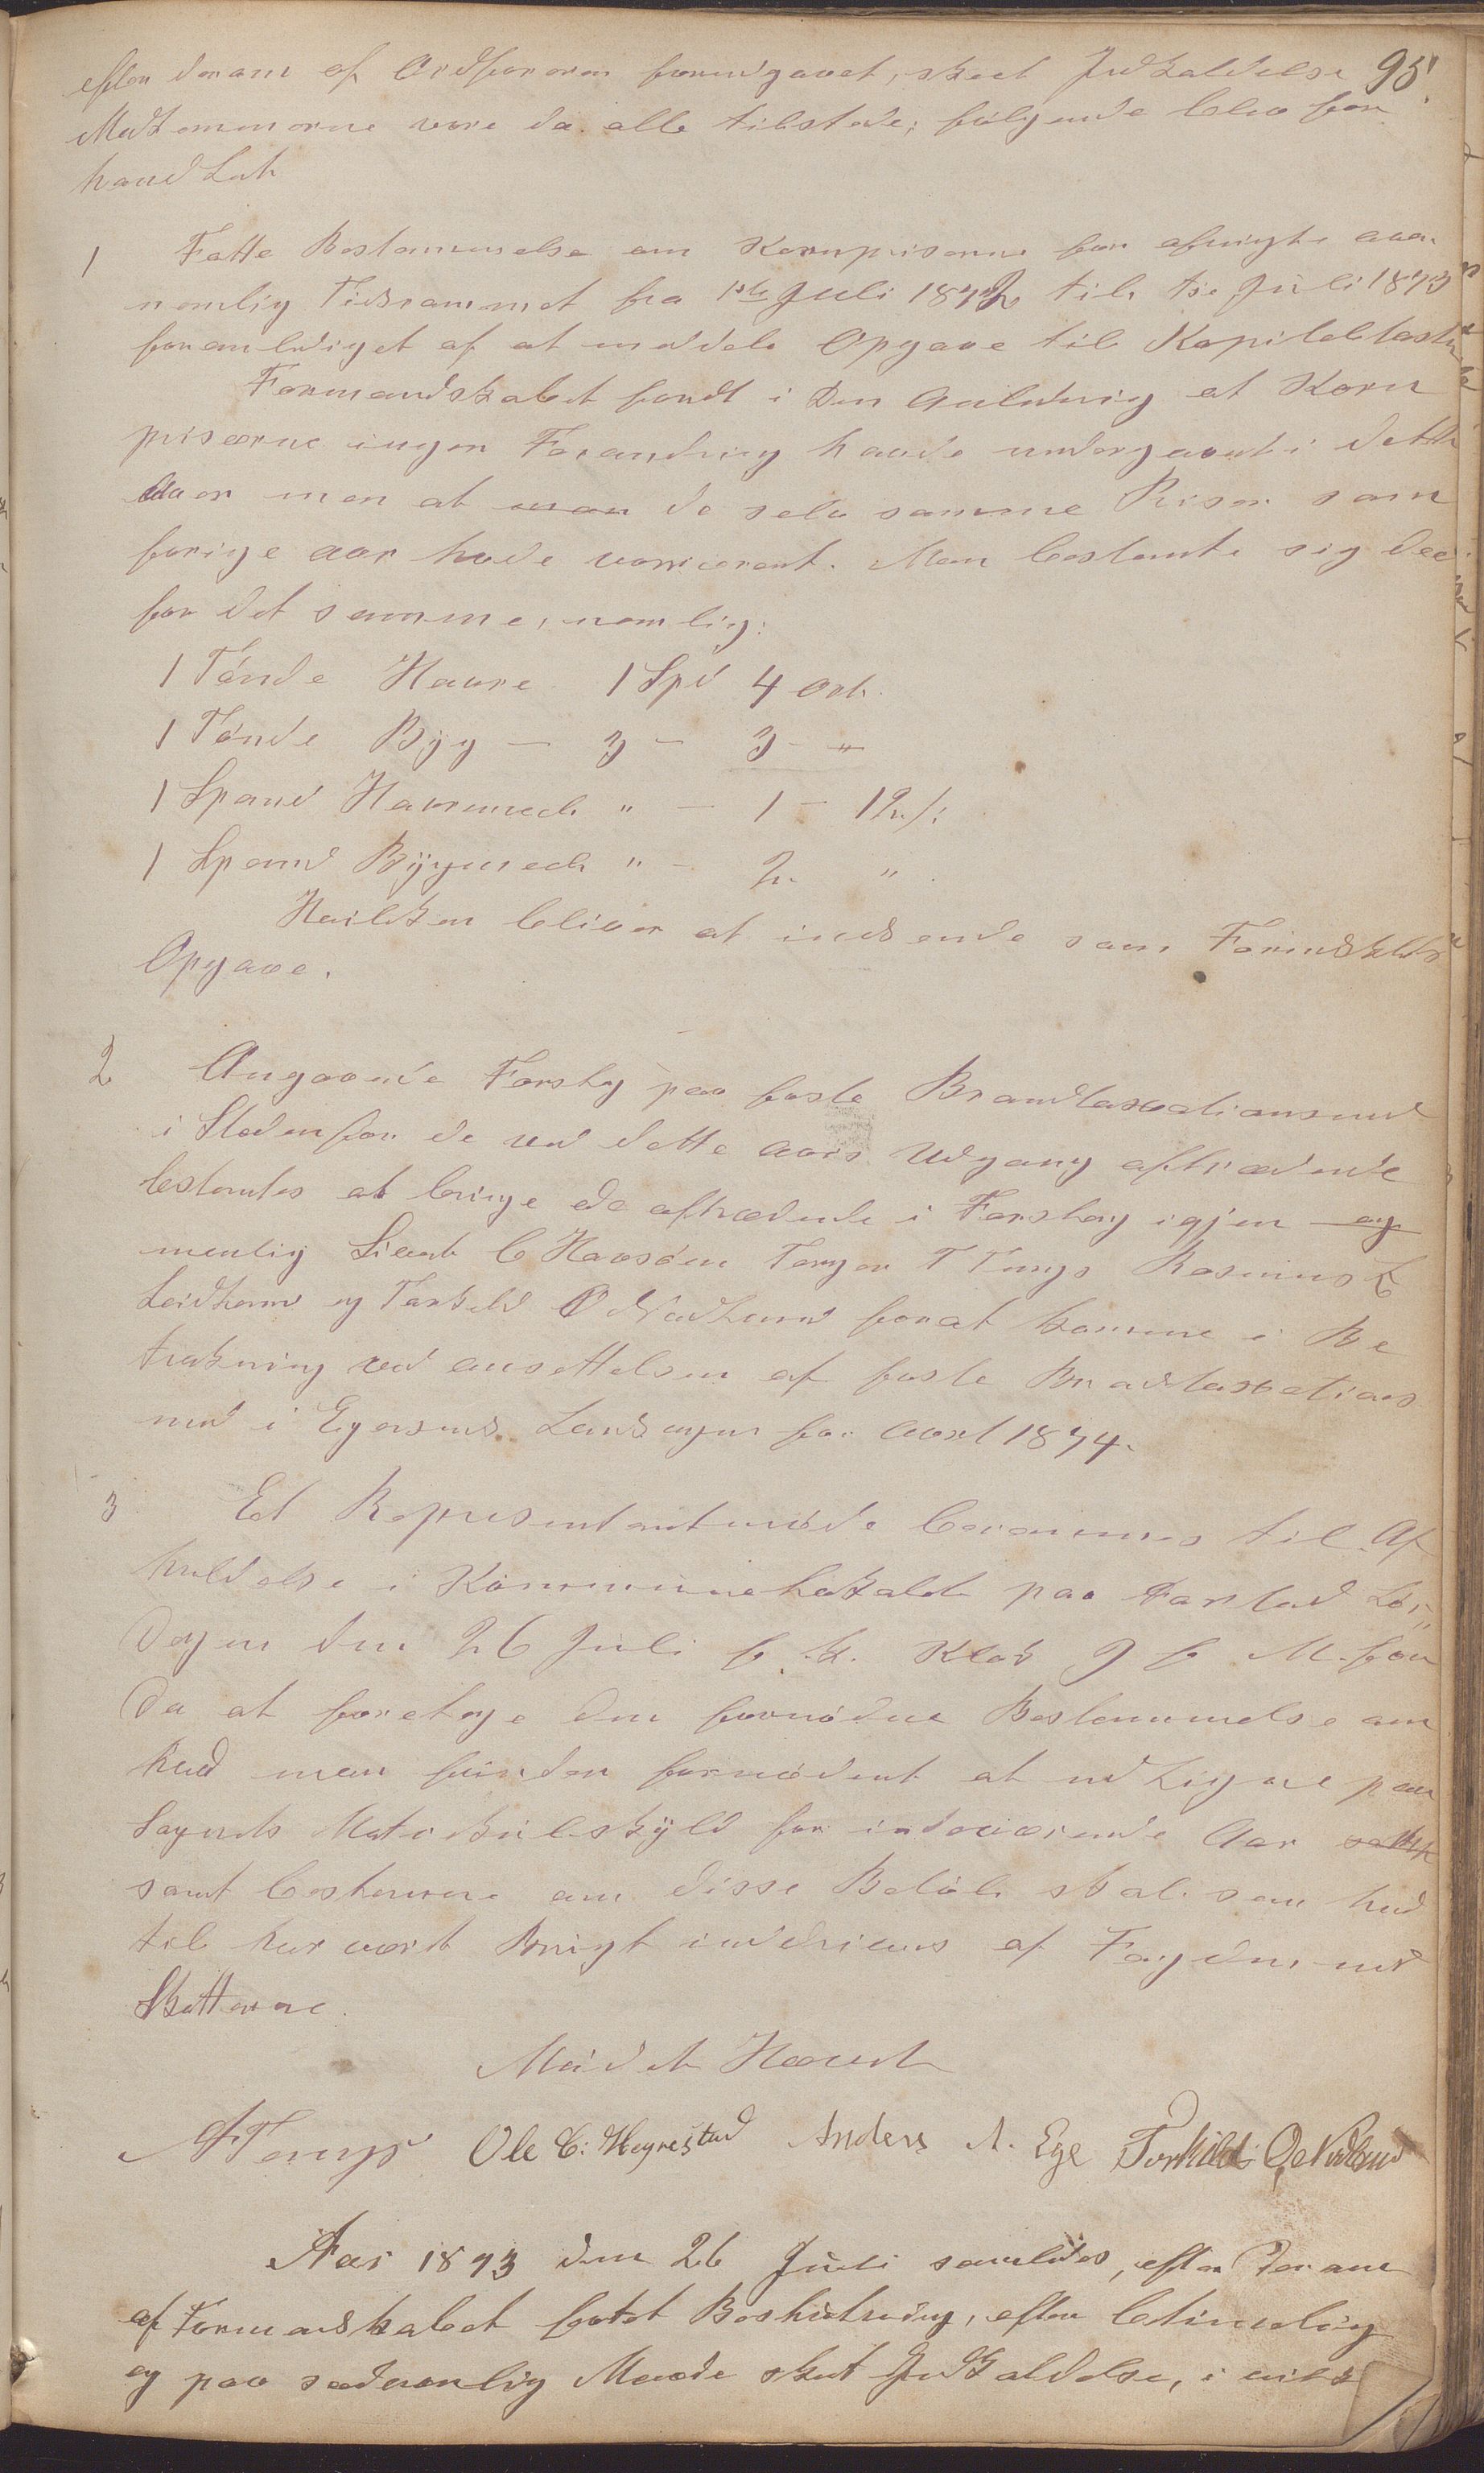 95
efter derom af Ordføreren forudgaaet, skeet Indkaldelse
Medlemmerne vare da alle tilstede; følgende blev for
handlet
1 Fatte Bestemmelse om Kornpriserne for afvigte aar
nemlig Tidsrummet fra 1ste Juli 1872 til 1ste Juli 1873
foranlediget af at meddele Opgave til Kapiteltaxten
Formandskabet fandt i den Anledning at Korn
priserne ingen Forandring havde undergaaet i dette
Aar men at man de selv samme Priser som
forige aar havde varieret. Man bestemte sig der
for det samme, nemlig:
1 Tønde Havre 1 Spd 4 Ort.
1 Tønde Byg — 3 — 3 - "
1 Spand Havremeel " — 1 — 12 /:
1 Spand Bygmeel " — 2 "
Hvilken bliver at indsende som Formdskbts
Opgave.
2 Angaaende Forslag paa faste Brandtaxationsmend
i Stedenfor de ved dette aars Udgang aftrædende
bestemtes at bringe de aftrædende i Forslag igjen og
nemlig Lieut C Havsøen Tenger T Tengs Rasmus L
Leidland og Torkild O Nedland forat komme i Be
trakning ved ansettelsen af faste Brandtaxations
mend i Egersunds Landsogn for Aaret 1874.
3 Et Representantmøde berammes til Af
holdelse i Kommunelokalet paa Aarstad Lør„
dagen den 26 Juli f. k. Klok 9 f M. for
da at foretage den fornødne Bestemmelse om
hvad man finder fornødent at udligne paa
Sognets Matrikulskyld for indeværende Aar samt
samt bestemme om disse Beløb skal som hid
til har vært Brugt inddrives af Fogden med
Skatterne.
Mødet Hævet
A Tengs Ole C: Hegrestad Anders A. Ege Torkild O Nedland
Aar 1873 den 26 Juli samledes, efter derom
af Formandskabet fatet Beslutning, efter betimelig
og paa sædvanlig Maade skeet Indkaldelse, i